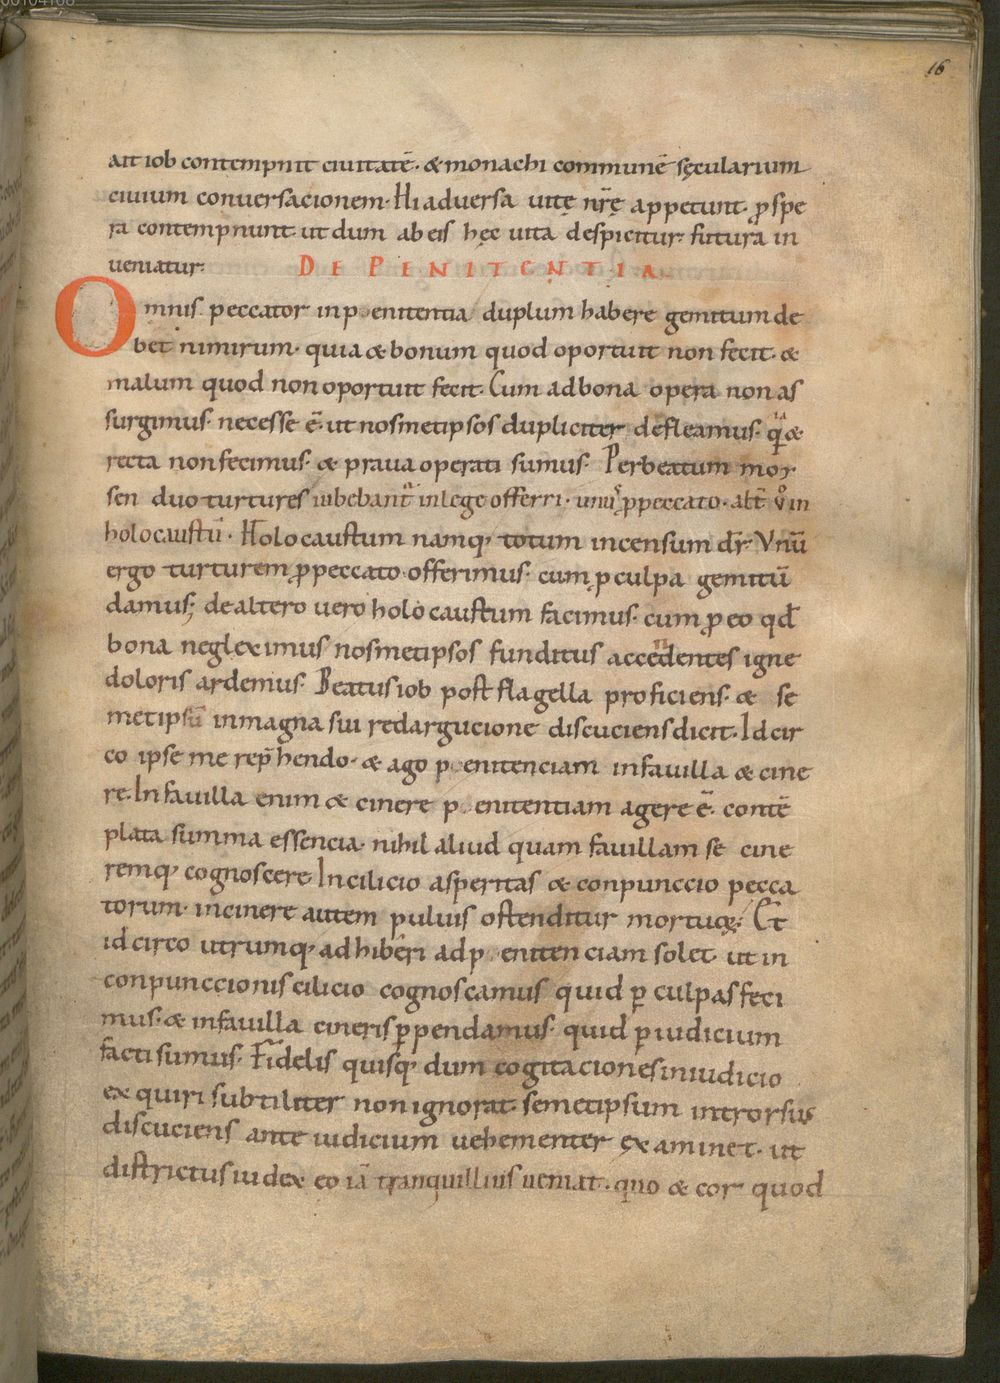 16
ait iob contempnit ciuitatē. & monachi communē sęcularium
ciuium conuersacionem. Hi aduersa uitę nr̄ę appetunt. ꝓspe
ra contempnunt. ut dum ab eis hęc uita despicitur. futura in
ueniatur.
DE PENITENTIA
Omnis peccator in p enitentia duplum habere gemitum de
bet nimirum. quia & bonum quod oportuit non fecit. &
malum quod non oportuit fecit. Cum ad bona opera non as
surgimus. necesse ē. ut nosmetipsos dupliciter defleamus. q̣ͣ &
recta non fecimus. & praua operati sumus. Per beatum moy
sen duo turtures iubebantᷣ in lege offerri. unuꝰ ꝓ peccato. alt̄ v̊ in
holocaustū. Holocaustum namq; totum incensum dr̄. Vnū
ergo turturem ꝓ peccato offerimus. cum ꝓ culpa gemitū
damus; de altero uero holocaustum facimus. cum ꝓ eo qđ
bona negleximus nosmetipsos funditus accēdentes igne
doloris ardemus. Beatus iob post flagella proficiens. & se
metipsū in magna sui redargucione discuciens dicit. Idcir
co ipse me rep̄hendo. & ago p enitenciam in fauilla & cine
re. In fauilla enim & cinere p enitentiam agere ē. contē
plata summa essencia. nihil aliud quam fauillam se cine
remq; cognoscere. In cilicio asperitas & conpunccio pecca
torum. in cinere autem puluis ostenditur mortuoꝝ. Et
idcirco utrumq; adhiberi ad p enitenciam solet. ut in
conpunccionis cilicio cognoscamus quid ꝑ culpas feci
mus. & in fauilla cineris ꝑpendamus. quid ꝑ iudicium
facti sumus. Fidelis quisq; dum cogitaciones in iudicio
exquiri subtiliter non ignorat. semetipsum introrsus
discuciens ante iudicium uehementer ęxaminet. ut
districtus iudex eo iā tranquillius ueniat. quo & cor quod